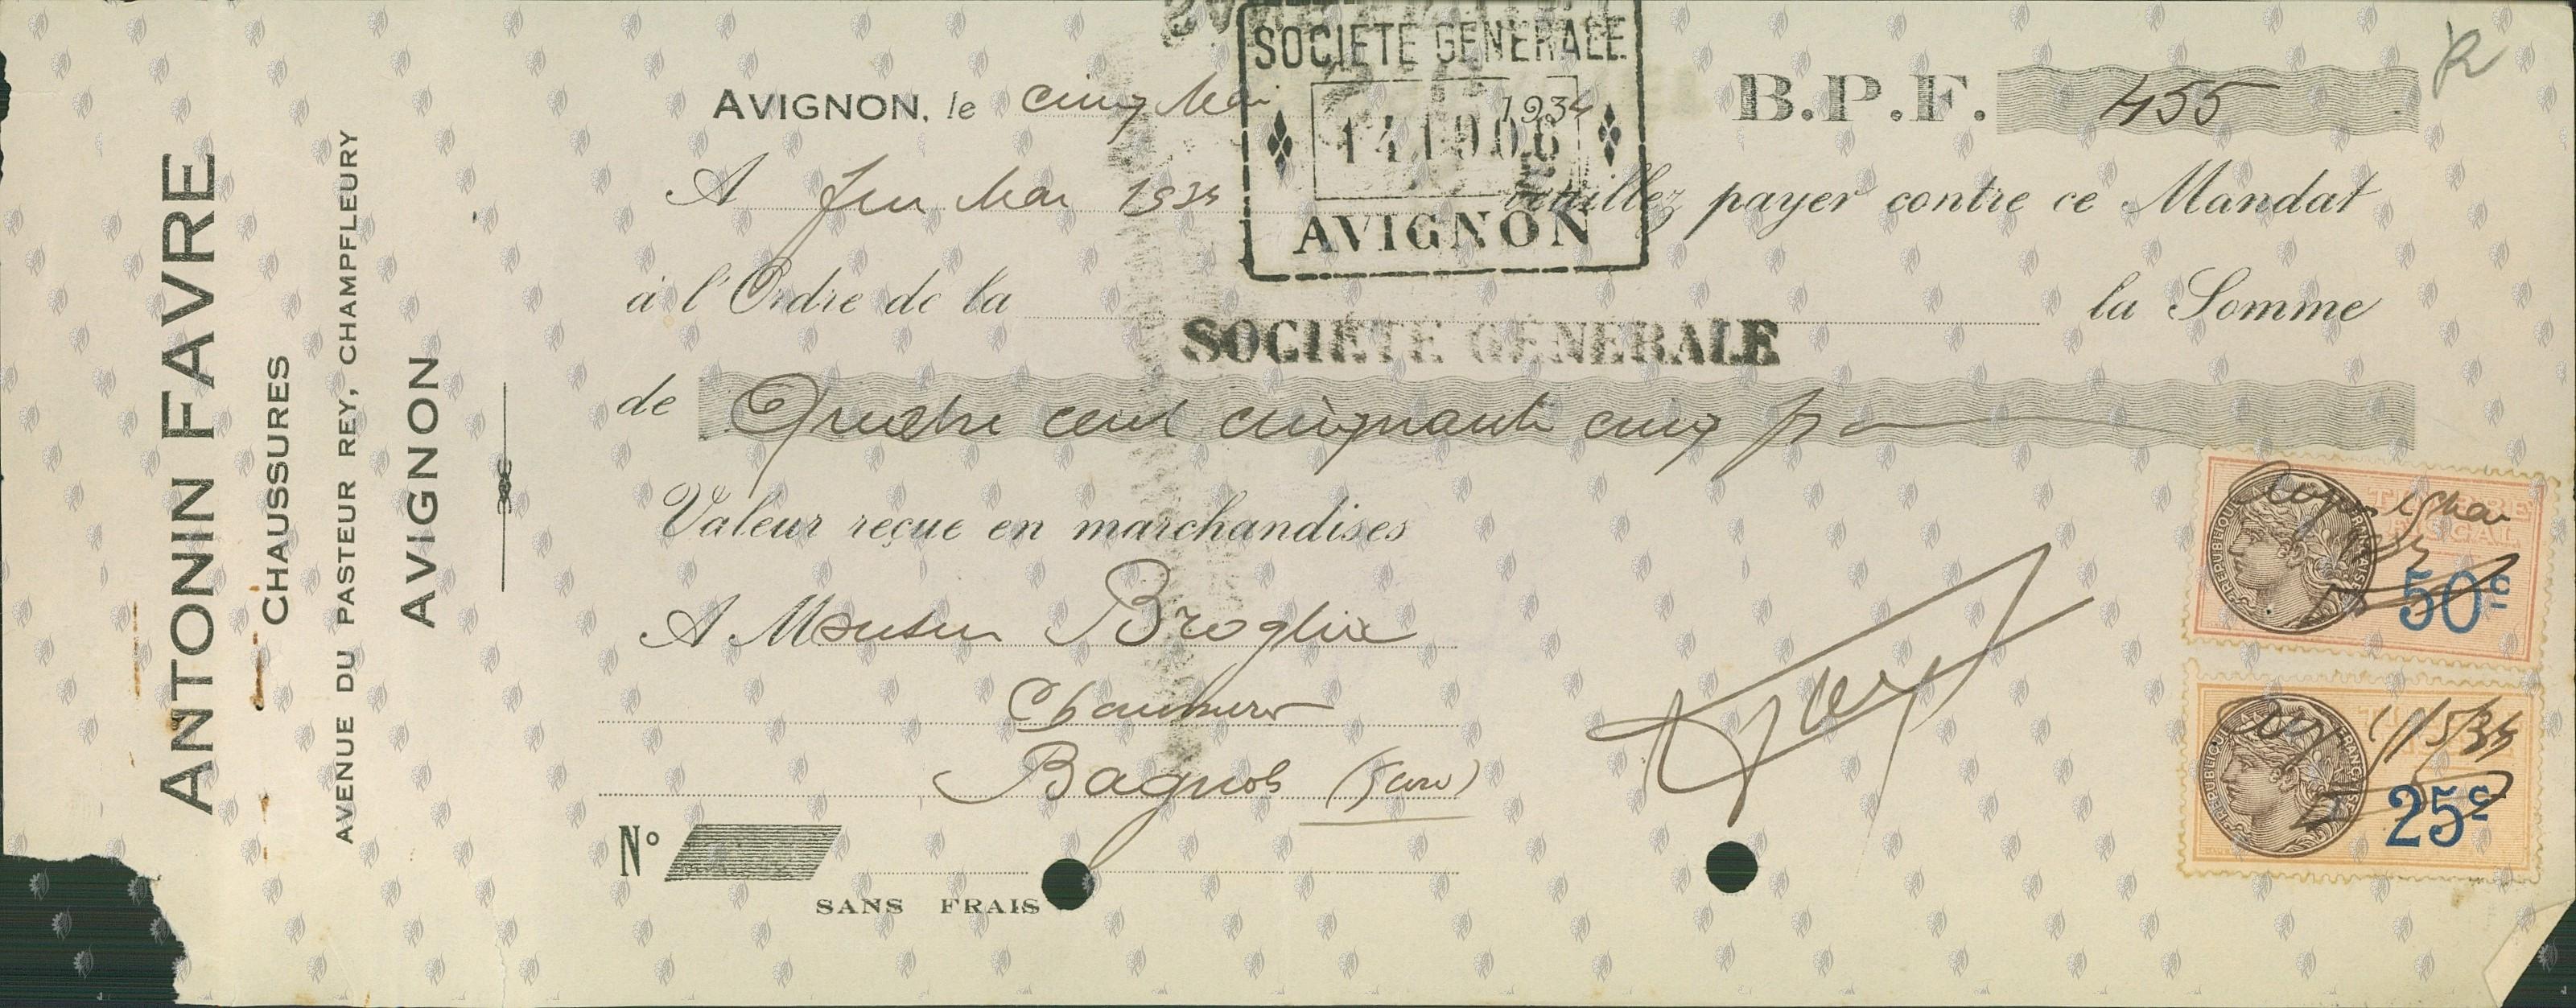 ANTONIN FAVRE
CHAUSSURES
AVENUE DU PASTEUR REY, CHAMPFLEURY
AVIGNON
SOCIETE GENERALE
141906
AVIGNON
AVIGNON, le cinq Mai 1934
B.P.F. 455
A fin Mai 1934 veuillez payer contre ce Mandat
à l'Ordre de la SOCIÉTÉ GÉNÉRALE la Somme
de Quatre cent cinquante cinq fr
Valeur reçue en marchandises
A Monsieur Broglia
Chaussures
Bagnols (Gard)
N°
SANS FRAIS
REPUBLIQUE FRANÇAISE
TIMBRE FISCAL
50c
REPUBLIQUE FRANÇAISE
5/5/34
25c